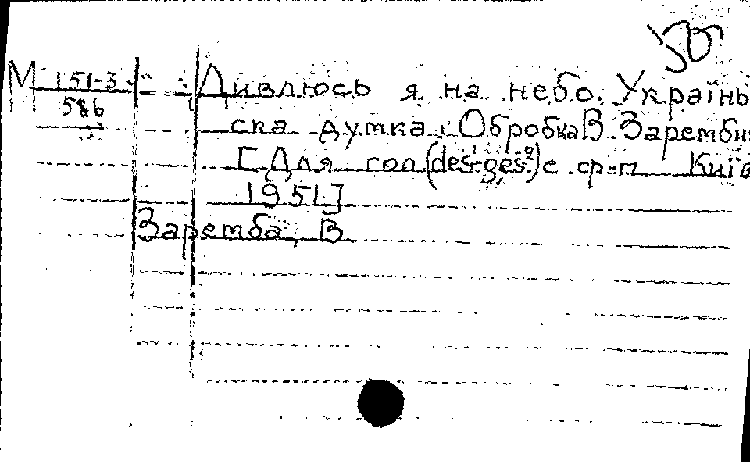 50
М 151-3 Дивлюсь я на небо. Українь
586 ска думка. Обробка В. Заремби
[Для гол (des¹-ges²) с ср-п Київ
1951]
Заремба, В